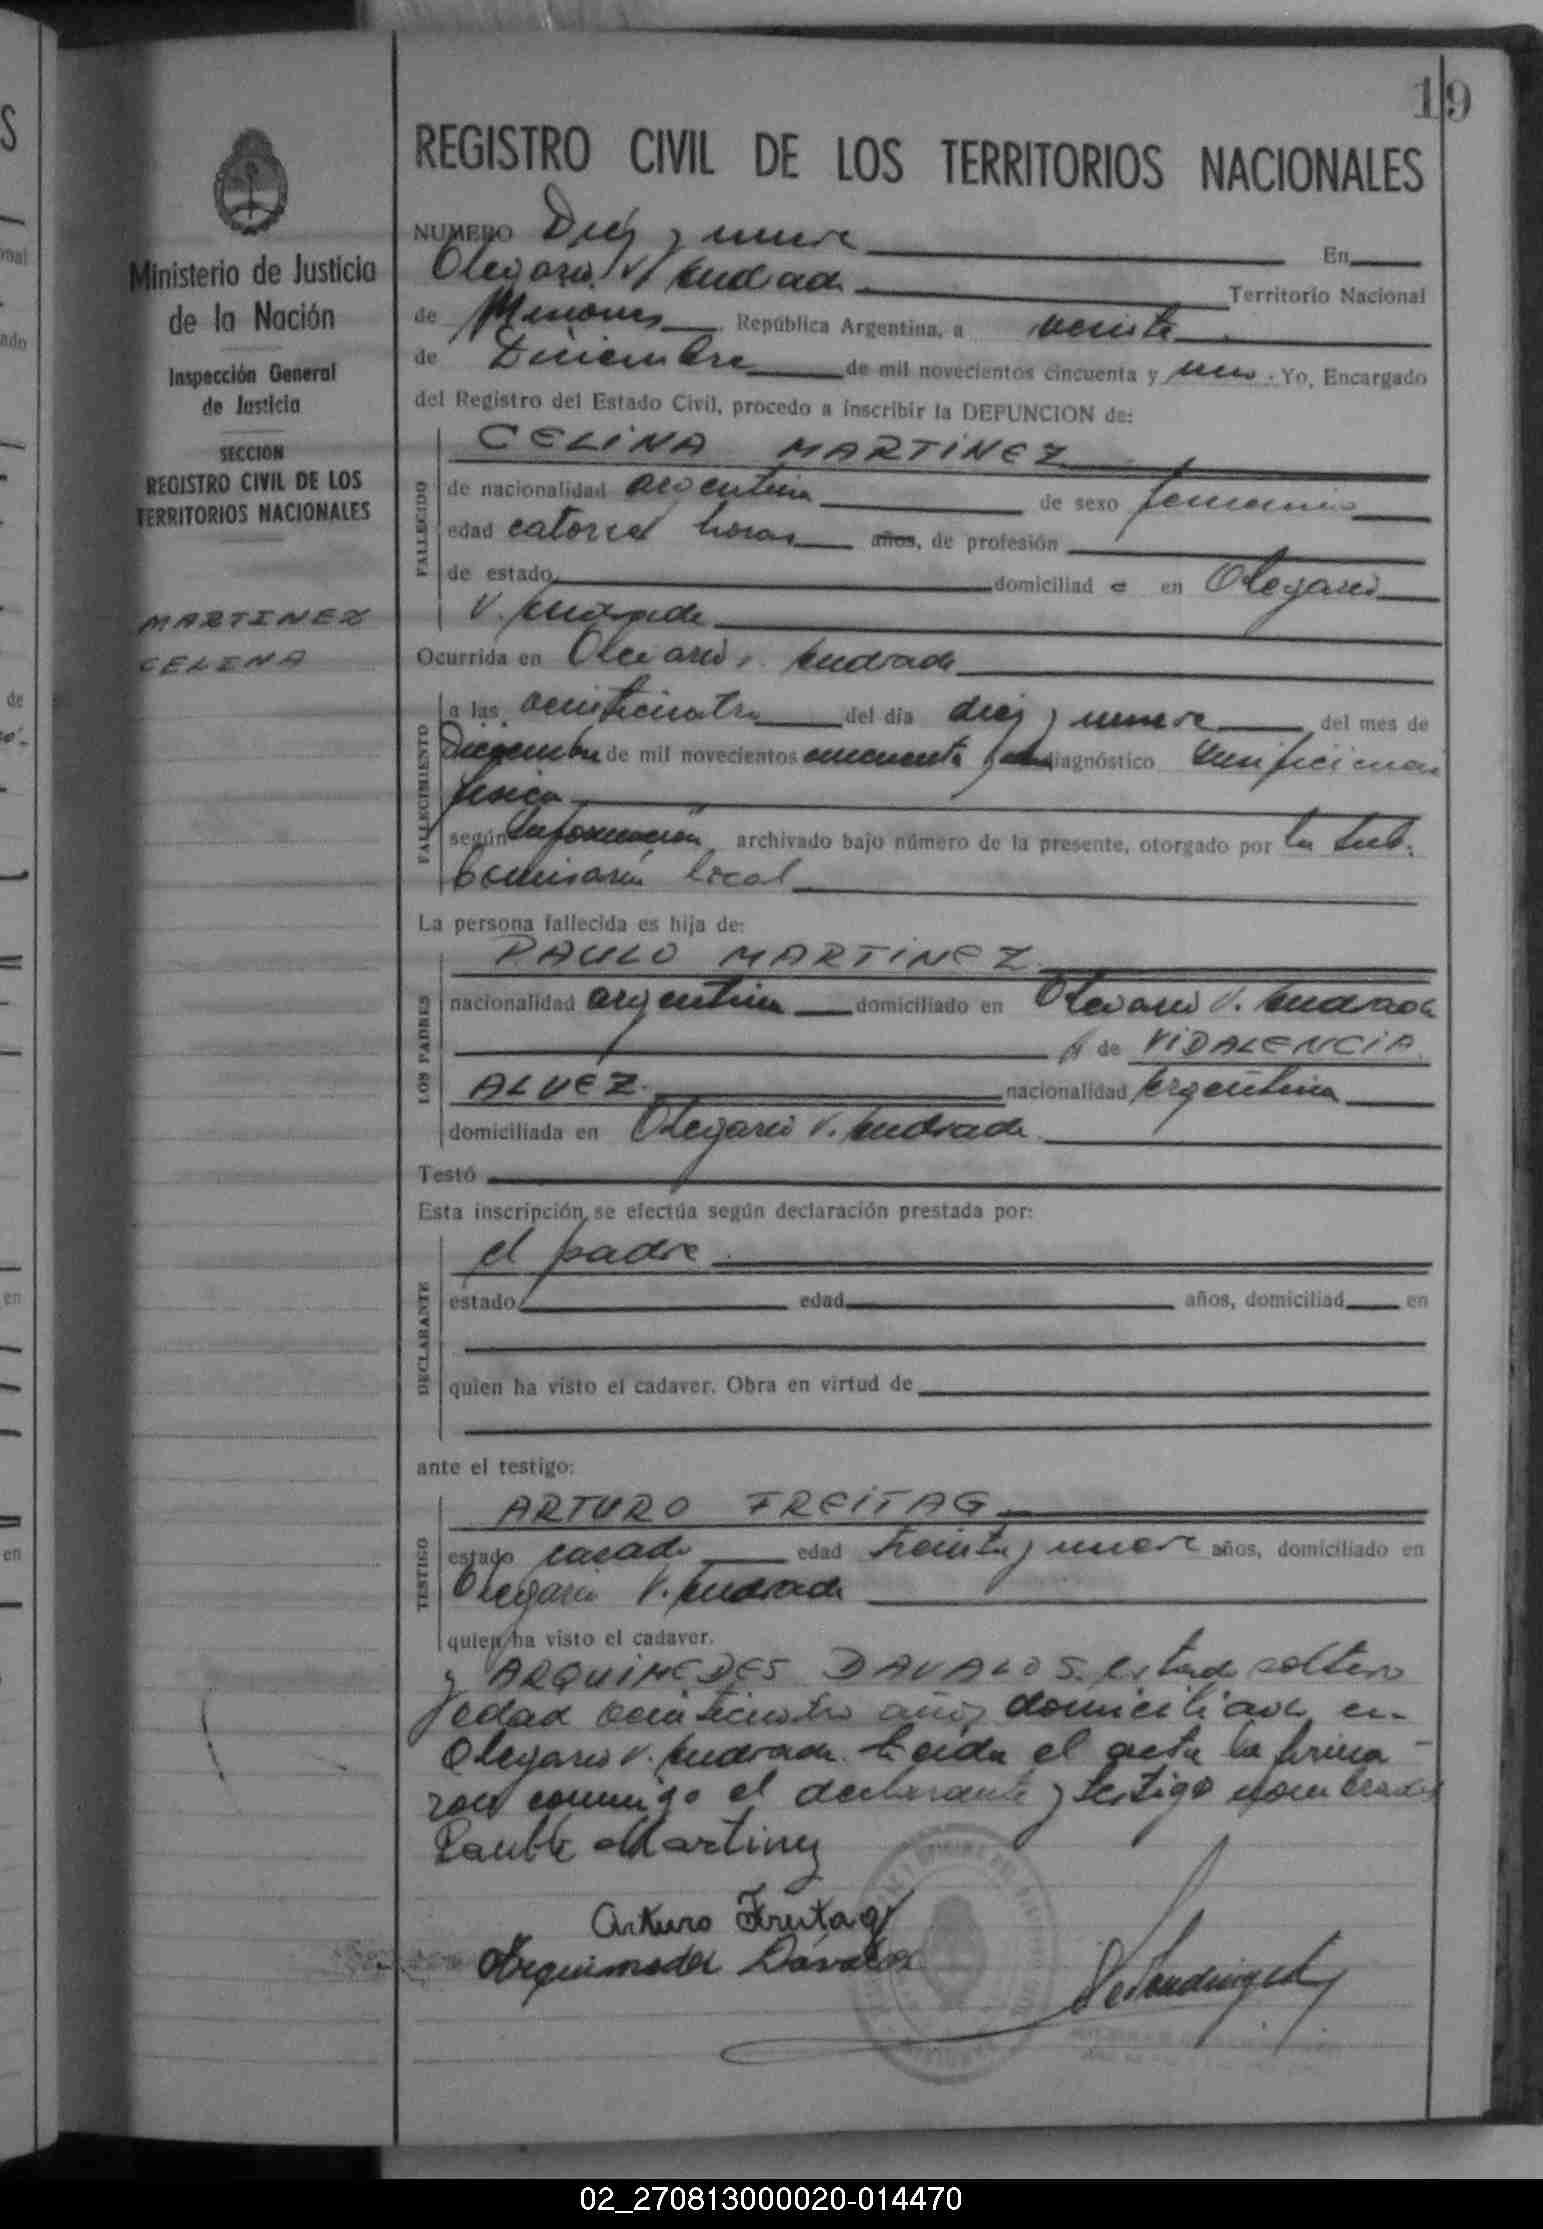 19
REGISTRO CIVIL DE LOS TERRITORIOS NACIONALES
Ministerio de Justicia
de la Nación
Inspección General
de Justicia
SECCION
REGISTRO CIVIL DE LOS
TERRITORIOS NACIONALES
MARTINEZ
CELINA
NUMERO Diez y nueve En
Olegario V. Andrade Territorio Nacional
de Misiones República Argentina, a veinte
de Diciembre de mil novecientos cincuenta y uno. Yo, Encargado
del Registro del Estado Civil, procedo a inscribir la DEFUNCION de:
CELINA MARTINEZ
FALLECIDO
de nacionalidad argentina de sexo femenino
edad catorce horas años, de profesión
de estado domiciliad a en Olegario
V. Andrade
Ocurrida en Olegario V. Andrade
FALLECIMIENTO
a las veinticuatro del día diez y nueve del mes de
Diciembre de mil novecientos cincuenta y uno diagnóstico
física
según Información archivado bajo número de la presente, otorgado por la Sub.
Comisaría local
La persona fallecida es hija de:
LOS PADRES
PAULO MARTINEZ
nacionalidad argentina domiciliado en Olegario V. Andrade
y de VIDALENCIA
ALVEZ. nacionalidad Argentina
domiciliada en Olegario V. Andrade
Testó
Esta inscripción se efectúa según declaración prestada por:
DECLARANTE
el padre
estado edad años, domiciliad en
quien ha visto el cadaver. Obra en virtud de
ante el testigo:
TESTIGO
ARTURO FREITAG
estado casado edad treinta y nueve años, domiciliado en
Olegario V. Andrade
quien ha visto el cadaver.
y ARQUIMEDES DAVALOS. estado soltero
edad veinticuatro años domiciliado en
Olegario V. Andrade. Leída el acta la firma-
ron conmigo el declarante y testigo nombrados
Martinez
Arturo Freitag
Arquimedes Dávalos
02_270813000020-014470